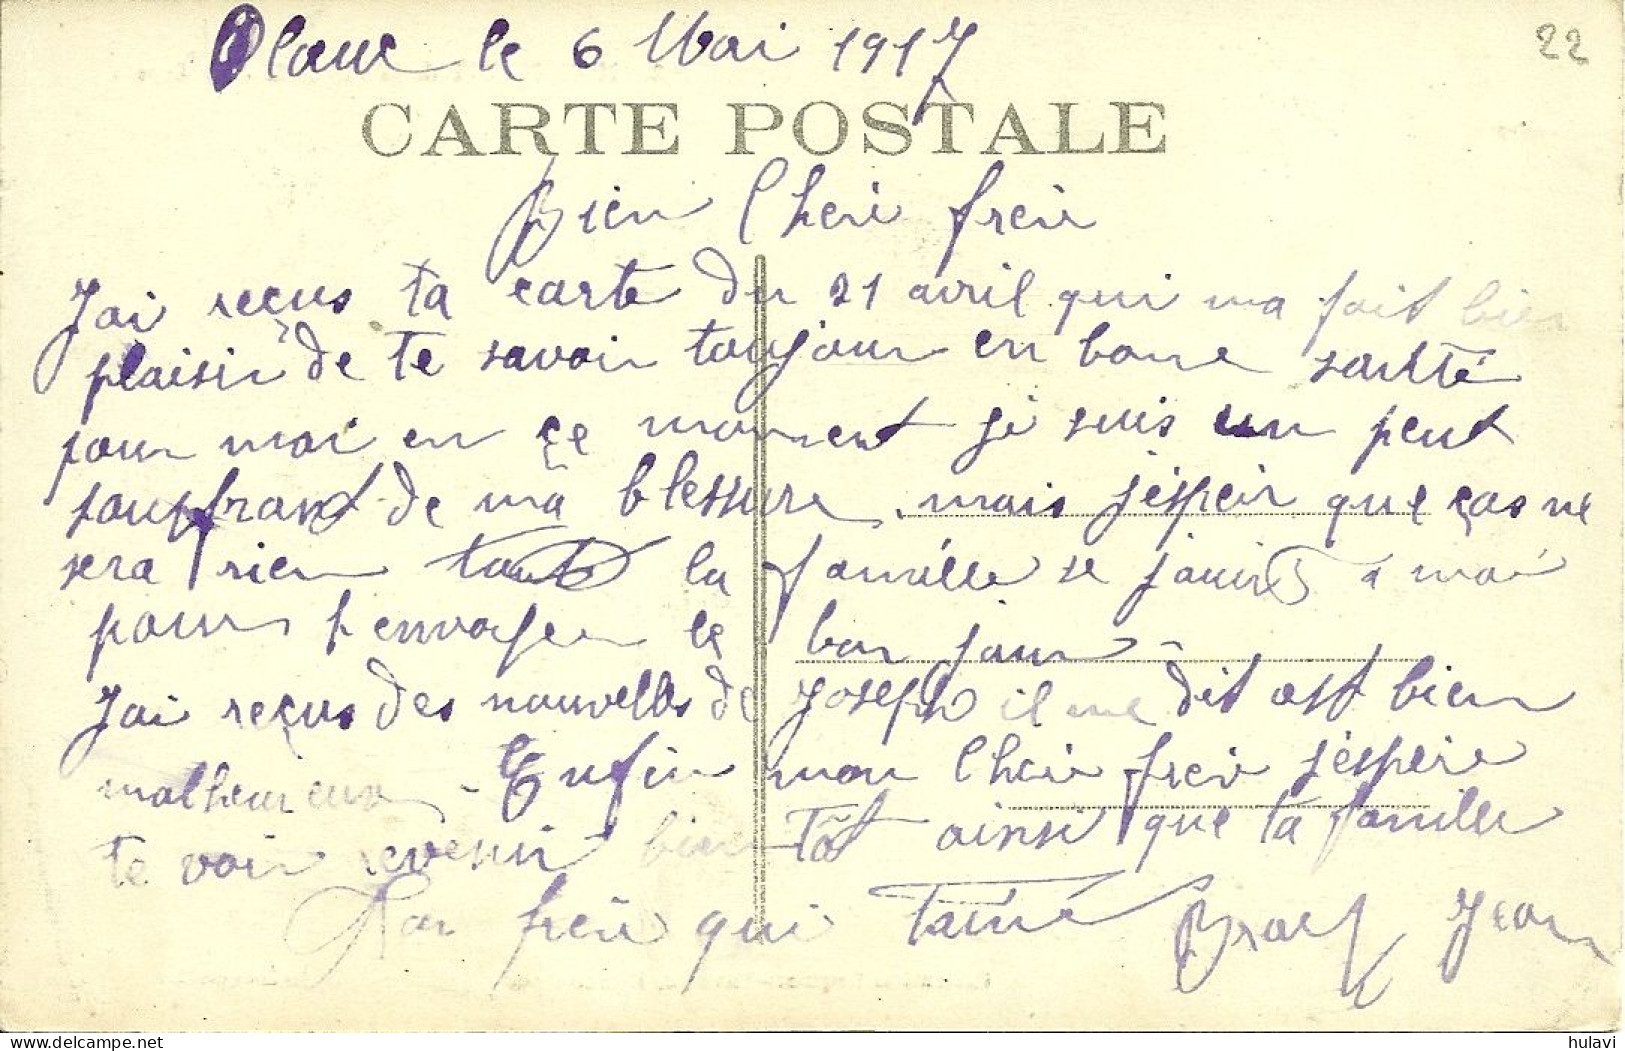 le 6 Mai 1917
22
CARTE POSTALE
Bien Cheir freir
J'ai reçus ta carte du 21 avril qui ma fait bien
plaisir de te savoir toujour en bonne santté
pour moi en ce moment je suis un peut
souffrant de ma blessure. mais j'espeir que ças ne
sera rien toute la famille se a moi
pour t envoyer le bon jour -
J'ai reçus des nouvelles de Joseph il me dit est bien
malheureux - Enfin mon Cheir freir j'espeire
te voir revenir bien tôt ainsi que ta famille
Ton freir qui taime Jean
delcampe.net
hulavi